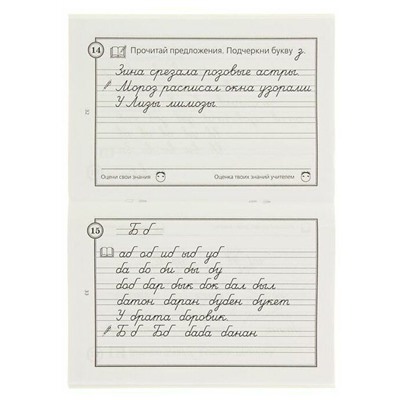 14 Прочитай предложения. Подчеркни букву з.
Зина срезала розовые астры.
Мороз расписал окна узорами
У Лизы мимозы
Оцени свои знания Оценка твоих знаний учителем
32
15 Б б
аб об иб ыб уб
ба бо би бы бу
боб бар бык бок бал был
батон баран бубен букет
У брата боровик.
Б б Б б баба банан
33